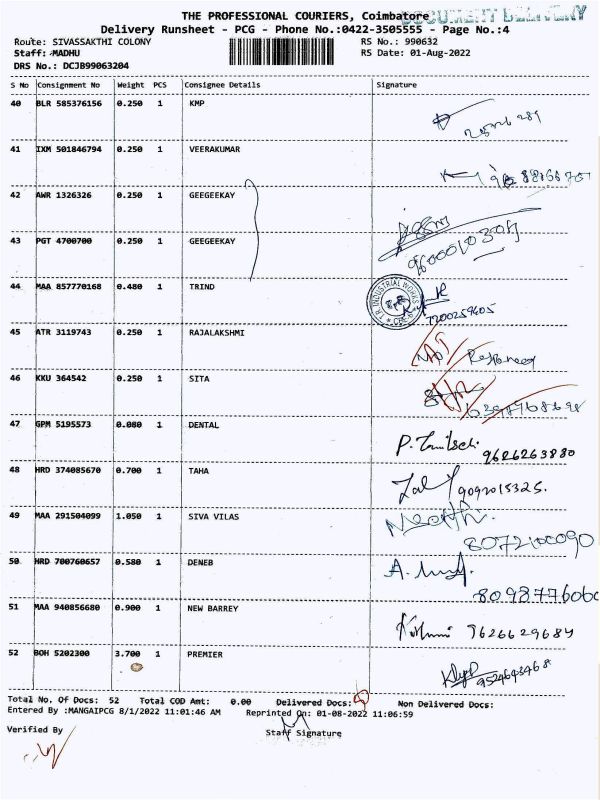 THE PROFESSIONAL COURIERS, Coimbatore
DOCUMENT DELIVERY
Delivery Runsheet - PCG - Phone No.:0422-3505555 - Page No.:4
Route: SIVASSAKTHI COLONY RS No.: 990632
Staff: MADHU RS Date: 01-Aug-2022
DRS No.: DCJB99063204
S No Consignment No Weight PCS Consignee Details Signature
40 BLR 585376156 0.250 1 KMP
41 IXM 501846794 0.250 1 VEERAKUMAR
42 AWR 1326326 0.250 1 GEEGEEKAY
43 PGT 4700700 0.250 1 GEEGEEKAY
44 MAA 857770168 0.480 1 TRIND
INDUSTRIAL WORKS
7200259605
45 ATR 3119743 0.250 1 RAJALAKSHMI
46 KKU 364542 0.250 1 SITA
47 GPM 5195573 0.080 1 DENTAL
9626263880
48 HRD 374085670 0.700 1 TAHA
9092015325.
49 MAA 291504099 1.050 1 SIVA VILAS
8072100090
50 HRD 700760657 0.580 1 DENEB
8098776060
51 MAA 940856680 0.900 1 NEW BARREY
9626629684
52 BOH 5202300 3.700 1 PREMIER
9524643468
Total No. Of Docs: 52 Total COD Amt: 0.00 Delivered Docs: Non Delivered Docs:
Entered By :MANGAIPCG 8/1/2022 11:01:46 AM Reprinted On: 01-08-2022 11:06:59
Verified By Staff Signature